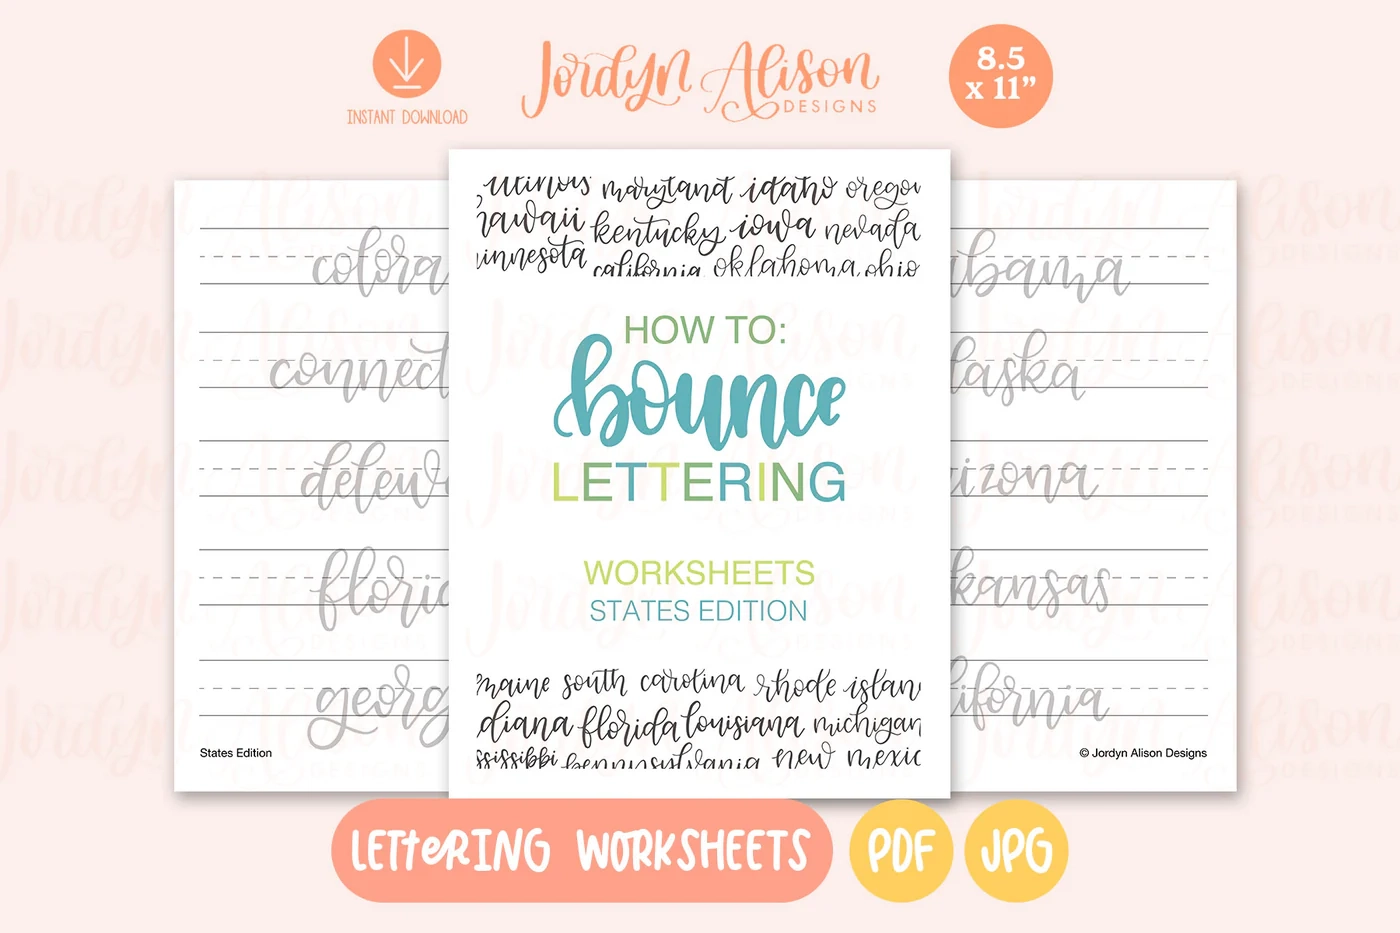 INSTANT DOWNLOAD
Jordyn Alison
DESIGNS
8.5
x 11”
illinois maryland idaho oregon
hawaii kentucky iowa nevada
minnesota california oklahoma ohio
HOW TO:
bounce
LETTERING
WORKSHEETS
STATES EDITION
maine south carolina rhode islan
diana florida louisiana michigan
ssissibbi pennsylvania new mexic
colora
connect
delewa
florid
georg
States Edition
abama
laska
izona
kansas
ifornia
© Jordyn Alison Designs
LETTERING WORKSHEETS
PDF
JPG